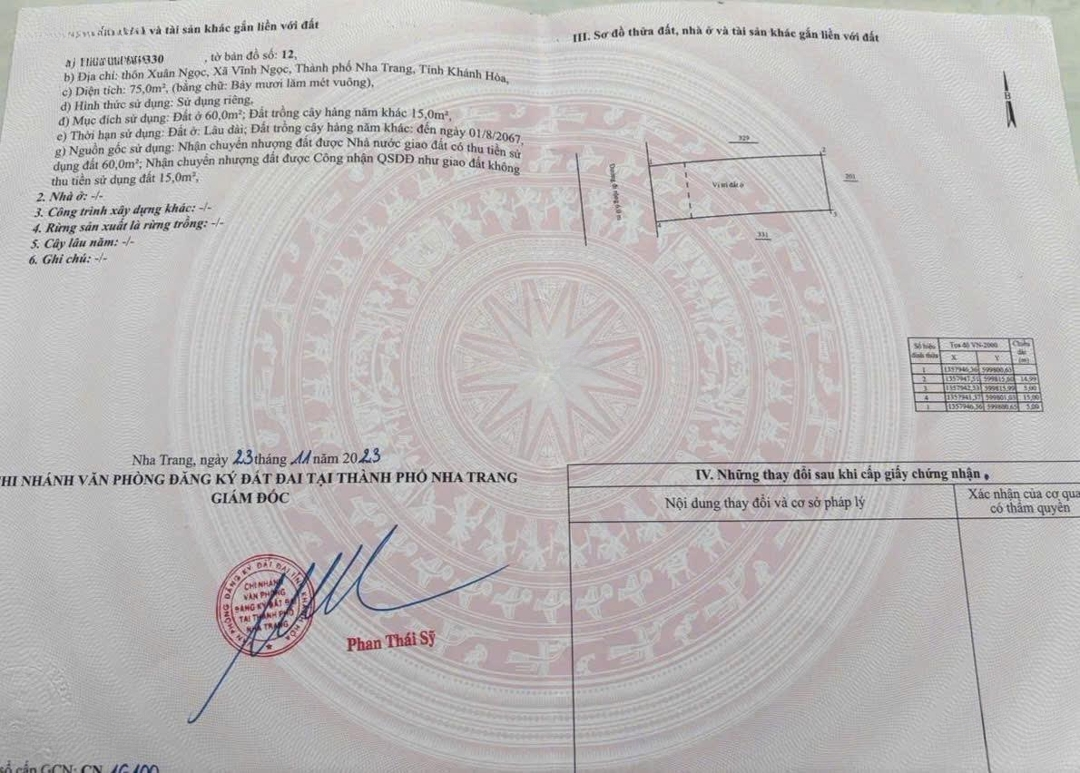 và tài sản khác gắn liền với đất
330, tờ bản đồ số: 12,
b) Địa chỉ: thôn Xuân Ngọc, Xã Vĩnh Ngọc, Thành phố Nha Trang, Tỉnh Khánh Hòa,
c) Diện tích: 75,0m², (bằng chữ: Bảy mươi lăm mét vuông),
d) Hình thức sử dụng: Sử dụng riêng,
đ) Mục đích sử dụng: Đất ở 60,0m²; Đất trồng cây hàng năm khác 15,0m²,
e) Thời hạn sử dụng: Đất ở: Lâu dài; Đất trồng cây hàng năm khác: đến ngày 01/8/2067,
g) Nguồn gốc sử dụng: Nhận chuyển nhượng đất được Nhà nước giao đất có thu tiền sử
dụng đất 60,0m²; Nhận chuyển nhượng đất được Công nhận QSDĐ như giao đất không
thu tiền sử dụng đất 15,0m²,
2. Nhà ở: -/-
3. Công trình xây dựng khác: -/-
4. Rừng sản xuất là rừng trồng: -/-
5. Cây lâu năm: -/-
6. Ghi chú: -/-
Nha Trang, ngày 23 tháng 11 năm 2023
CHI NHÁNH VĂN PHÒNG ĐĂNG KÝ ĐẤT ĐAI TẠI THÀNH PHỐ NHA TRANG
GIÁM ĐỐC
VĂN PHÒNG ĐĂNG KÝ ĐẤT ĐAI TỈNH KHÁNH HÒA
CHI NHÁNH
VĂN PHÒNG
ĐĂNG KÝ ĐẤT ĐAI
TẠI THÀNH PHỐ
NHA TRANG
Phan Thái Sỹ
số cấp GCN: CN
III. Sơ đồ thửa đất, nhà ở và tài sản khác gắn liền với đất
B
329
1
2
Đường đi rộng 6.0 m
Vị trí đất ở
201
4
3
331
Số hiệu đỉnh thửa Tọa độ VN-2000 Chiều dài (m)
X Y
1 1357946,36 599800,65
2 1357947,51 599815,60 14,99
3 1357942,53 599815,99 5,00
4 1357941,37 599801,03 15,00
1 1357946,36 599800,65 5,00
IV. Những thay đổi sau khi cấp giấy chứng nhận
Nội dung thay đổi và cơ sở pháp lý
Xác nhận của cơ quan
có thẩm quyền